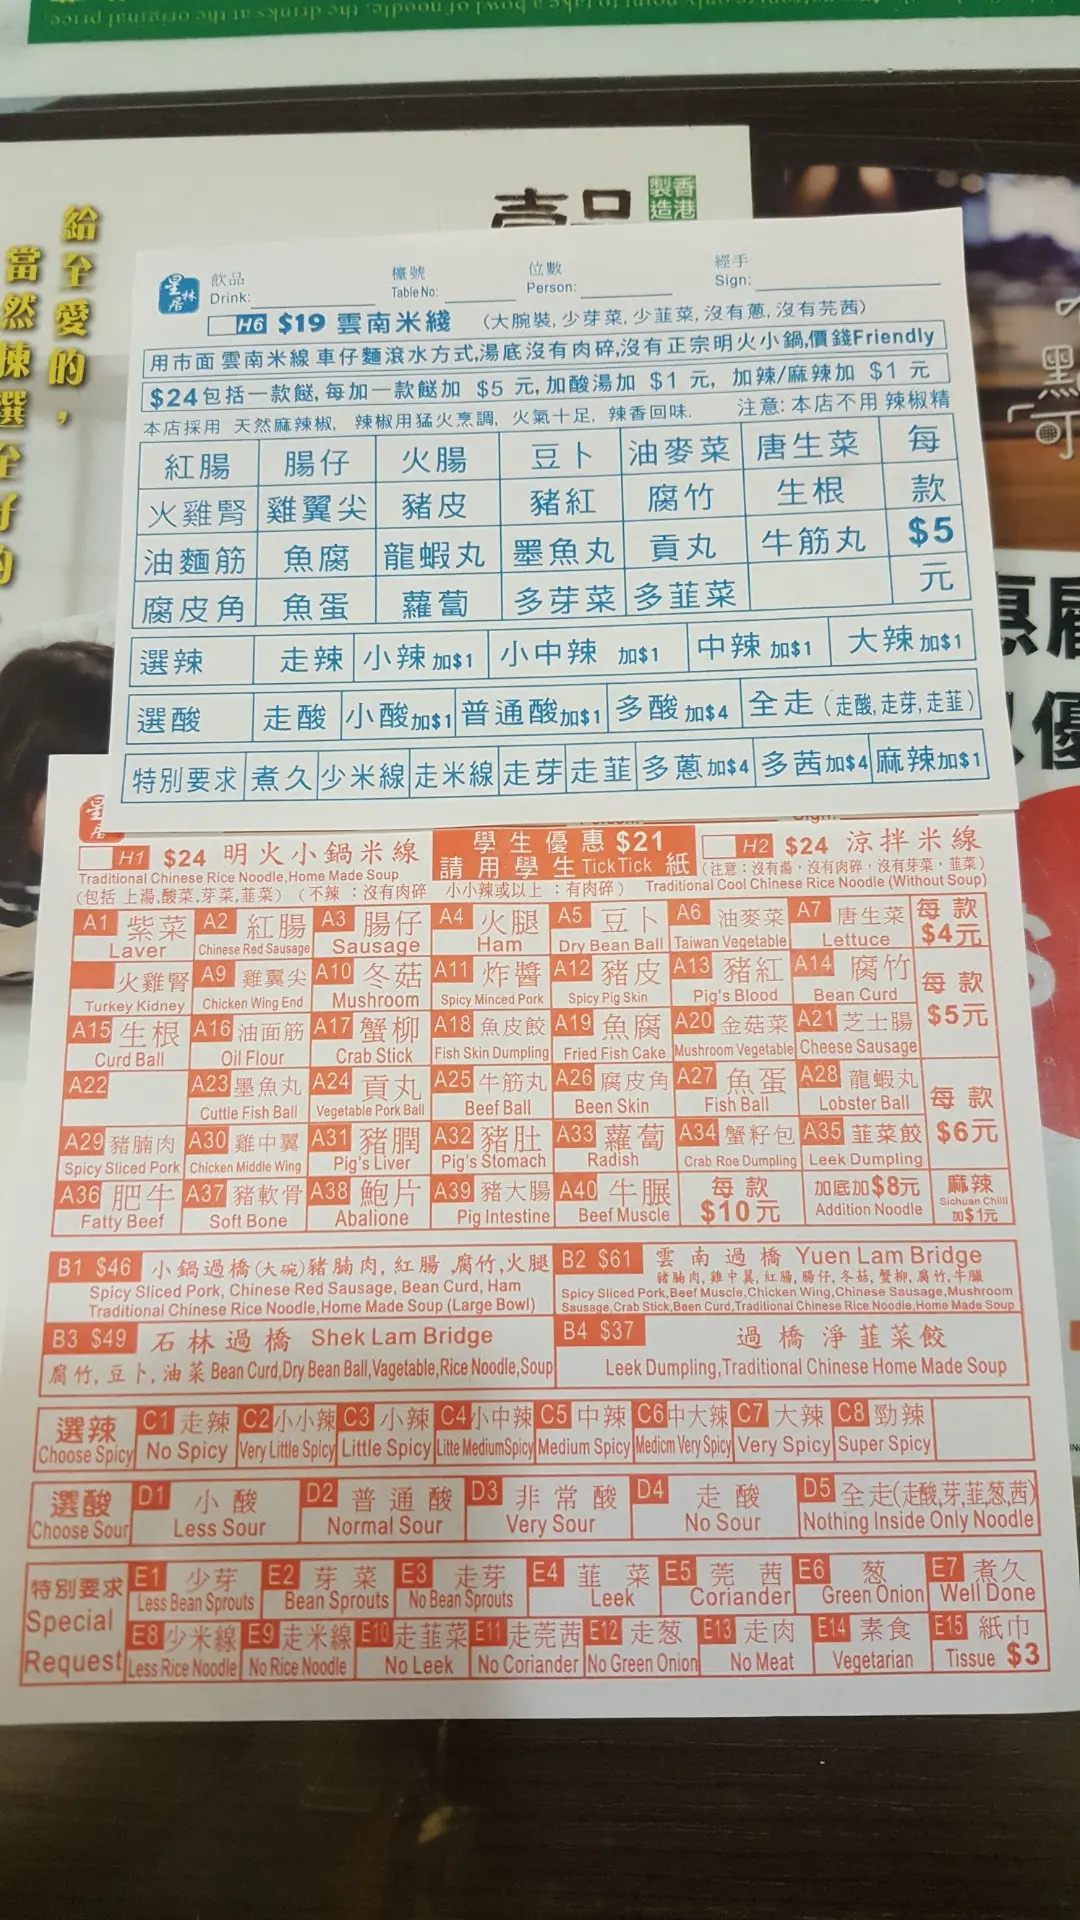 給至愛的，
當然揀選至好的
壹品
香港製造
星林居
飲品 Drink:
檯號 Table No:
位數 Person:
經手 Sign:
H6 $19 雲南米綫 (大腕裝,少芽菜,少韮菜,沒有蔥,沒有芫茜)
用市面 雲南米線 車仔麵滾水方式,湯底沒有肉碎,沒有正宗明火小鍋,價錢Friendly
$24包括一款餸,每加一款餸加 $5 元,加酸湯加 $1 元, 加辣/麻辣加 $1 元
本店採用 天然麻辣椒, 辣椒用猛火烹調, 火氣十足, 辣香回味. 注意:本店不用 辣椒精
紅腸 腸仔 火腸 豆卜 油麥菜 唐生菜 每
火雞腎 雞翼尖 豬皮 豬紅 腐竹 生根 款
油麵筋 魚腐 龍蝦丸 墨魚丸 貢丸 牛筋丸 $5
腐皮角 魚蛋 蘿蔔 多芽菜 多韮菜 元
選辣 走辣 小辣加$1 小中辣 加$1 中辣加$1 大辣加$1
選酸 走酸 小酸加$1 普通酸加$1 多酸加$4 全走(走酸,走芽,走韮)
特別要求 煮久 少米線 走米線 走芽 走韮 多蔥加$4 多茜加$4 麻辣加$1
H1 $24 明火小鍋米線 學生優惠 $21 H2 $24 涼拌米線
Traditional Chinese Rice Noodle,Home Made Soup 請用學生TickTick 紙 (注意：沒有湯，沒有肉碎，沒有芽菜，韮菜)
(包括 上湯,酸菜,芽菜,韮菜) (不辣：沒有肉碎 小小辣或以上：有肉碎) Traditional Cool Chinese Rice Noodle (Without Soup)
A1 紫菜 A2 紅腸 A3 腸仔 A4 火腿 A5 豆卜 A6 油麥菜 A7 唐生菜 每款
Laver Chinese Red Sausage Sausage Ham Dry Bean Ball Taiwan Vegetable Lettuce $4元
火雞腎 A9 雞翼尖 A10 冬菇 A11 炸醬 A12 豬皮 A13 豬紅 A14 腐竹 每款
Turkey Kidney Chicken Wing End Mushroom Spicy Minced Pork Spicy Pig Skin Pig's Blood Bean Curd
A15 生根 A16 油面筋 A17 蟹柳 A18 魚皮餃 A19 魚腐 A20 金菇菜 A21 芝士腸 $5元
Curd Ball Oil Flour Crab Stick Fish Skin Dumpling Fried Fish Cake Mushroom Vegetable Cheese Sausage
A22 A23 墨魚丸 A24 貢丸 A25 牛筋丸 A26 腐皮角 A27 魚蛋 A28 龍蝦丸 每款
Cuttle Fish Ball Vegetable Pork Ball Beef Ball Been Skin Fish Ball Lobster Ball
A29 豬腩肉 A30 雞中翼 A31 豬膶 A32 豬肚 A33 蘿蔔 A34 蟹籽包 A35 韮菜餃 $6元
Spicy Sliced Pork Chicken Middle Wing Pig's Liver Pig's Stomach Radish Crab Roe Dumpling Leek Dumpling
A36 肥牛 A37 豬軟骨 A38 鮑片 A39 豬大腸 A40 牛𦟌 每款 加底加$8元 麻辣
Fatty Beef Soft Bone Abalione Pig Intestine Beef Muscle $10元 Addition Noodle Sichuan Chilli 加$1元
B1 $46 小鍋過橋(大碗)豬腩肉,紅腸,腐竹,火腿
Spicy Sliced Pork, Chinese Red Sausage, Bean Curd, Ham
Traditional Chinese Rice Noodle,Home Made Soup (Large Bowl)
B2 $61 雲南過橋 Yuen Lam Bridge
豬腩肉,雞中翼,紅腸,腸仔,冬菇,蟹柳,腐竹,牛𦟌
Spicy Sliced Pork,Beef Muscle,Chicken Wing,Chinese Sausage,Mushroom
Sausage,Crab Stick,Been Curd,Traditional Chinese Rice Noodle,Home Made Soup
B3 $49 石林過橋 Shek Lam Bridge
腐竹,豆卜,油菜 Bean Curd,Dry Bean Ball,Vagetable,Rice Noodle,Soup
B4 $37 過橋淨韮菜餃
Leek Dumpling,Traditional Chinese Home Made Soup
選辣 C1 走辣 C2 小小辣 C3 小辣 C4 小中辣 C5 中辣 C6 中大辣 C7 大辣 C8 勁辣
Choose Spicy No Spicy Very Little Spicy Little Spicy Litte MediumSpicy Medium Spicy Medicm Very Spicy Very Spicy Super Spicy
選酸 D1 小酸 D2 普通酸 D3 非常酸 D4 走酸 D5 全走(走酸,芽,韮,葱,茜)
Choose Sour Less Sour Normal Sour Very Sour No Sour Nothing Inside Only Noodle
特別要求 E1 少芽 E2 芽菜 E3 走芽 E4 韮菜 E5 莞茜 E6 葱 E7 煮久
Special Less Bean Sprouts Bean Sprouts No Bean Sprouts Leek Coriander Green Onion Well Done
Request E8 少米線 E9 走米線 E10 走韮菜 E11 走莞茜 E12 走葱 E13 走肉 E14 素食 E15 紙巾
Less Rice Noodle No Rice Noodle No Leek No Coriander No Green Onion No Meat Vegetarian Tissue $3